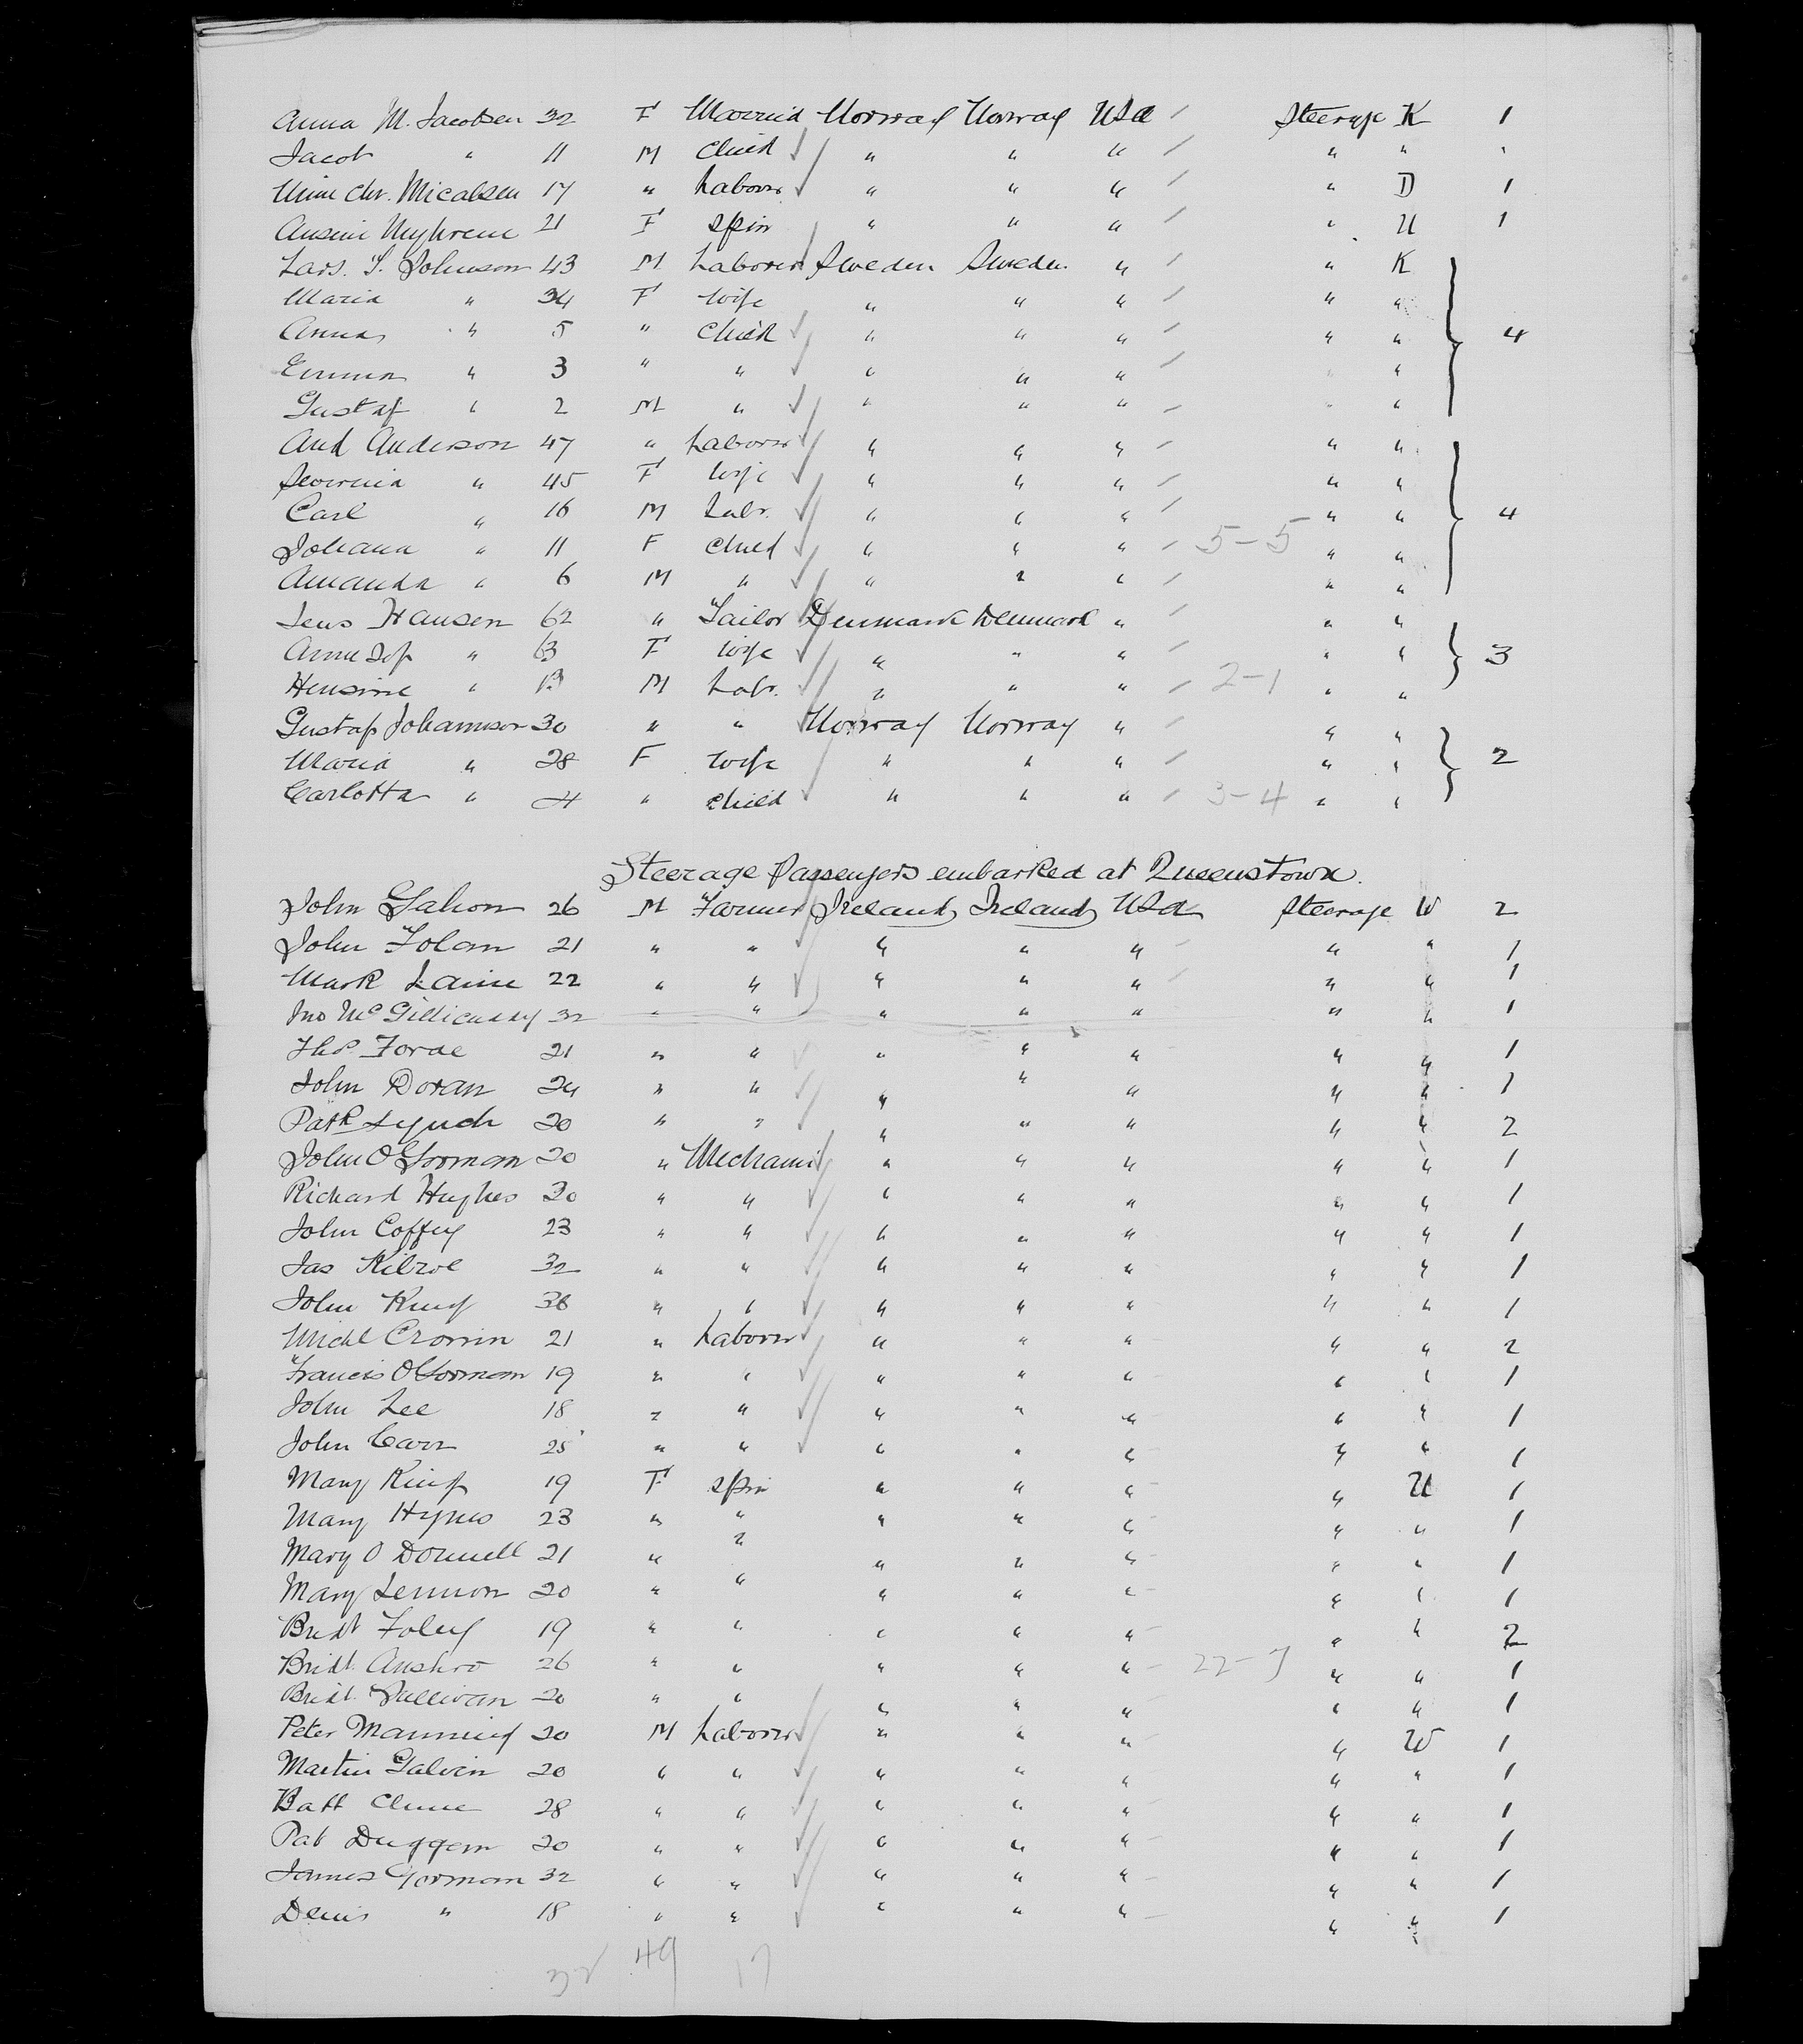 Anna M. Jacobsen 32 F Married Norway Norway USA / Steerage K 1
Jacob " 11 M Child " " " / " " "
Chr. Micalsen 17 " Laborer " " " / " D 1
21 F Spin " " " / " U 1
Lars. Johnson 43 M Laborer Sweden Sweden " / " K
Maria " 34 F Wife " " " / " "
Anna " 5 " Child " " " / " " 4
Emma " 3 " " " " " / " "
Gustaf " 2 M " " " " / " "
And Anderson 47 " Laborer " " " / " "
" 45 F Wife " " " / " "
Carl " 16 M Labr. " " " / " " 4
Johana " 11 F Child " " " / 5-5 " "
Amanda " 6 M " " " " / " "
Jens Hansen 62 " Tailor Denmark Denmark " / " "
" 63 F Wife " " " / " " 3
Hensine " M Labr. " " " / 2-1 " "
Gustaf Johannson 30 " " Norway Norway " / " "
Maria " 28 F Wife " " " / " " 2
Carlotta " 4 " Child " " " / 3-4 " "
Steerage Passengers embarked at Queenstown.
John Gahon 26 M Farmer Ireland Ireland USA Steerage W 2
John Tolan 21 " " " " " " " 1
Mark 22 " " " " " " " 1
Jno McGillicuddy 32 " " " " " " " 1
Thos. Forde 21 " " " " " " " 1
John Doran 24 " " " " " " " 1
Patk Lynch 20 " " " " " " " 2
John O Gorman 20 " Mechanic " " " " " 1
Richard Hughes 30 " " " " " " " 1
John Coffey 23 " " " " " " " 1
Jas Kilroe 32 " " " " " " " 1
John King 36 " " " " " " " 1
Michl Cronin 21 " Laborer " " " " " 2
Francis O Gorman 19 " " " " " " " 1
John Lee 18 " " " " " " " 1
John Carr 25 " " " " " " " 1
Mary King 19 F Spin " " " " U 1
Mary Hynes 23 " " " " " " " 1
Mary O Donnell 21 " " " " " " " 1
Mary Lennon 20 " " " " " " " 1
Bridt Foley 19 " " " " " " " 2
Bridt. Anshro 26 " " " " " 22-7 " " 1
Bridt. Sullivan 20 " " " " " " " 1
Peter Manning 20 M Laborer " " " " W 1
Martin Galvin 20 " " " " " " " 1
Batt Clune 28 " " " " " " " 1
Pat Duggan 20 " " " " " " " 1
James Gorman 32 " " " " " " " 1
Denis " 18 " " " " " " " 1
32 49 17